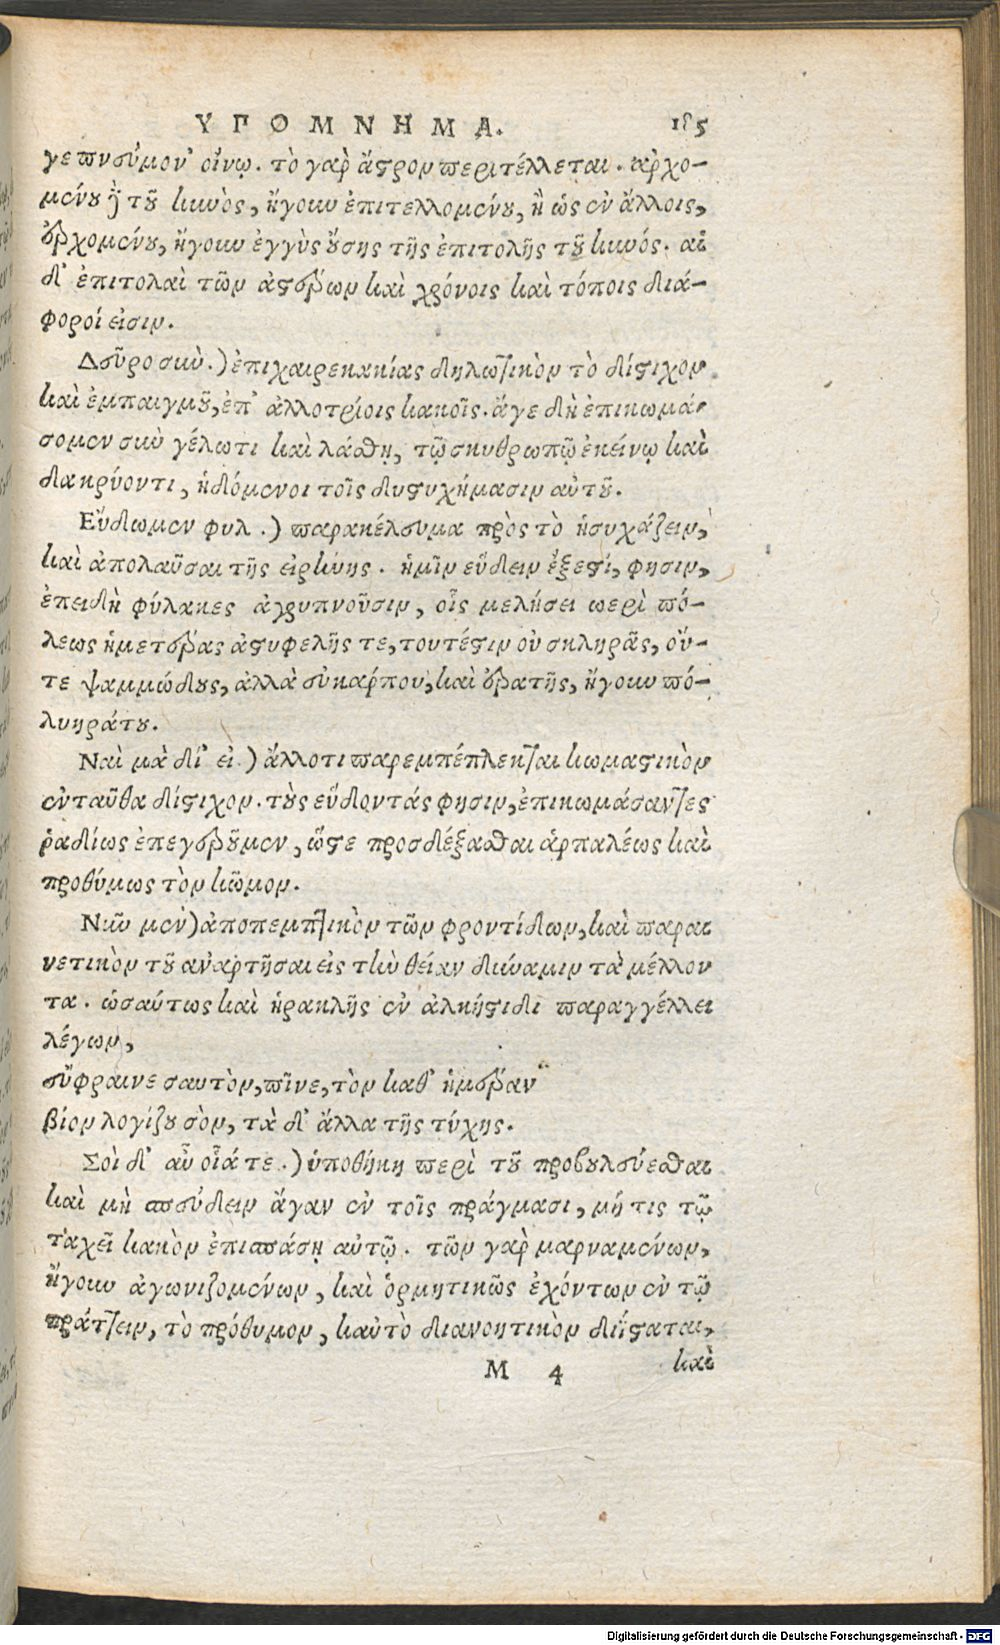 ΥΠΟΜΝΗΜΑ. 185
γε πνεύμον' οἴνῳ. τὸ γὰρ ἄστρον περιτέλλεται. ἀρχο-
μένου ἢ τοῦ κυνὸς, ἤγουν ἐπιτελλομένου, ἢ ὡς ἐν ἄλλοις,
ἐρχομένου, ἤγουν ἐγγὺς οὔσης τῆς ἐπιτολῆς τοῦ κυνός. αἱ
δ' ἐπιτολαὶ τῶν ἀστέρων καὶ χρόνοις καὶ τόποις διά-
φοροί εἰσιν.
Δεῦρο σὺν.) ἐπιχαιρεκακίας δηλωτικὸν τὸ δίστιχον
καὶ ἐμπαιγμοῦ, ἐπ' ἀλλοτρίοις κακοῖς. ἄγε δὴ ἐπικωμά-
σομεν σὺν γέλωτι καὶ λάσθῃ, τῷ σκυθρωπῷ ἐκείνῳ καὶ
δακρύοντι, ἡδόμενοι τοῖς δυστυχήμασιν αὐτοῦ.
Εὕδωμεν φυλ.) παρακέλευσμα πρὸς τὸ ἡσυχάζειν,
καὶ ἀπολαῦσαι τῆς εἰρήνης. ἡμῖν εὕδειν ἔξεστί, φησιν,
ἐπειδὴ φύλακες ἀγρυπνοῦσιν, οἷς μελήσει περὶ πό-
λεως ἡμετέρας ἀστυφελῆς τε, τουτέστιν οὐ σκληρᾶς, οὔ-
τε ψαμμώδους, ἀλλὰ εὐκάρπου, καὶ ἐρατῆς, ἤγουν πο-
λυηράτου.
Ναὶ μὰ δί' εἰ.) ἄλλοτι παρεμπέπλεκται κωμαστικὸν
ἐνταῦθα δίστιχον. τοὺς εὕδοντάς φησιν, ἐπικωμάσαντες
ῥαδίως ἐπεγεροῦμεν, ὥστε προσδέξασθαι ἁρπαλέως καὶ
προθύμως τὸν κῶμον.
Νῦν μὲν) ἀποπεμπτικὸν τῶν φροντίδων, καὶ παραι
νετικὸν τοῦ ἀναρτῆσαι εἰς τὴν θείαν δύναμιν τὰ μέλλον
τα. ὡσαύτως καὶ ἡρακλῆς ἐν ἀλκήστιδι παραγγέλλει
λέγων,
εὔφραινε σαυτὸν, πῖνε, τὸν καθ' ἡμέραν
βίον λογίζου σὸν, τὰ δ' ἄλλα τῆς τύχης.
Σοὶ δ' αὖ οἷά τε.) ὑποθήκη περὶ τοῦ προβουλεύεσθαι
καὶ μὴ σπεύδειν ἄγαν ἐν τοῖς πράγμασι, μή τις τῷ
τάχει κακὸν ἐπισπάσῃ αὐτῷ. τῶν γὰρ μαρναμένων,
ἤγουν ἀγωνιζομένων, καὶ ὁρμητικῶς ἐχόντων ἐν τῷ
πράττειν, τὸ πρόθυμον, καὐτὸ διανοητικὸν διίσταται,
Μ 4 καὶ
Digitalisierung gefördert durch die Deutsche Forschungsgemeinschaft - DFG